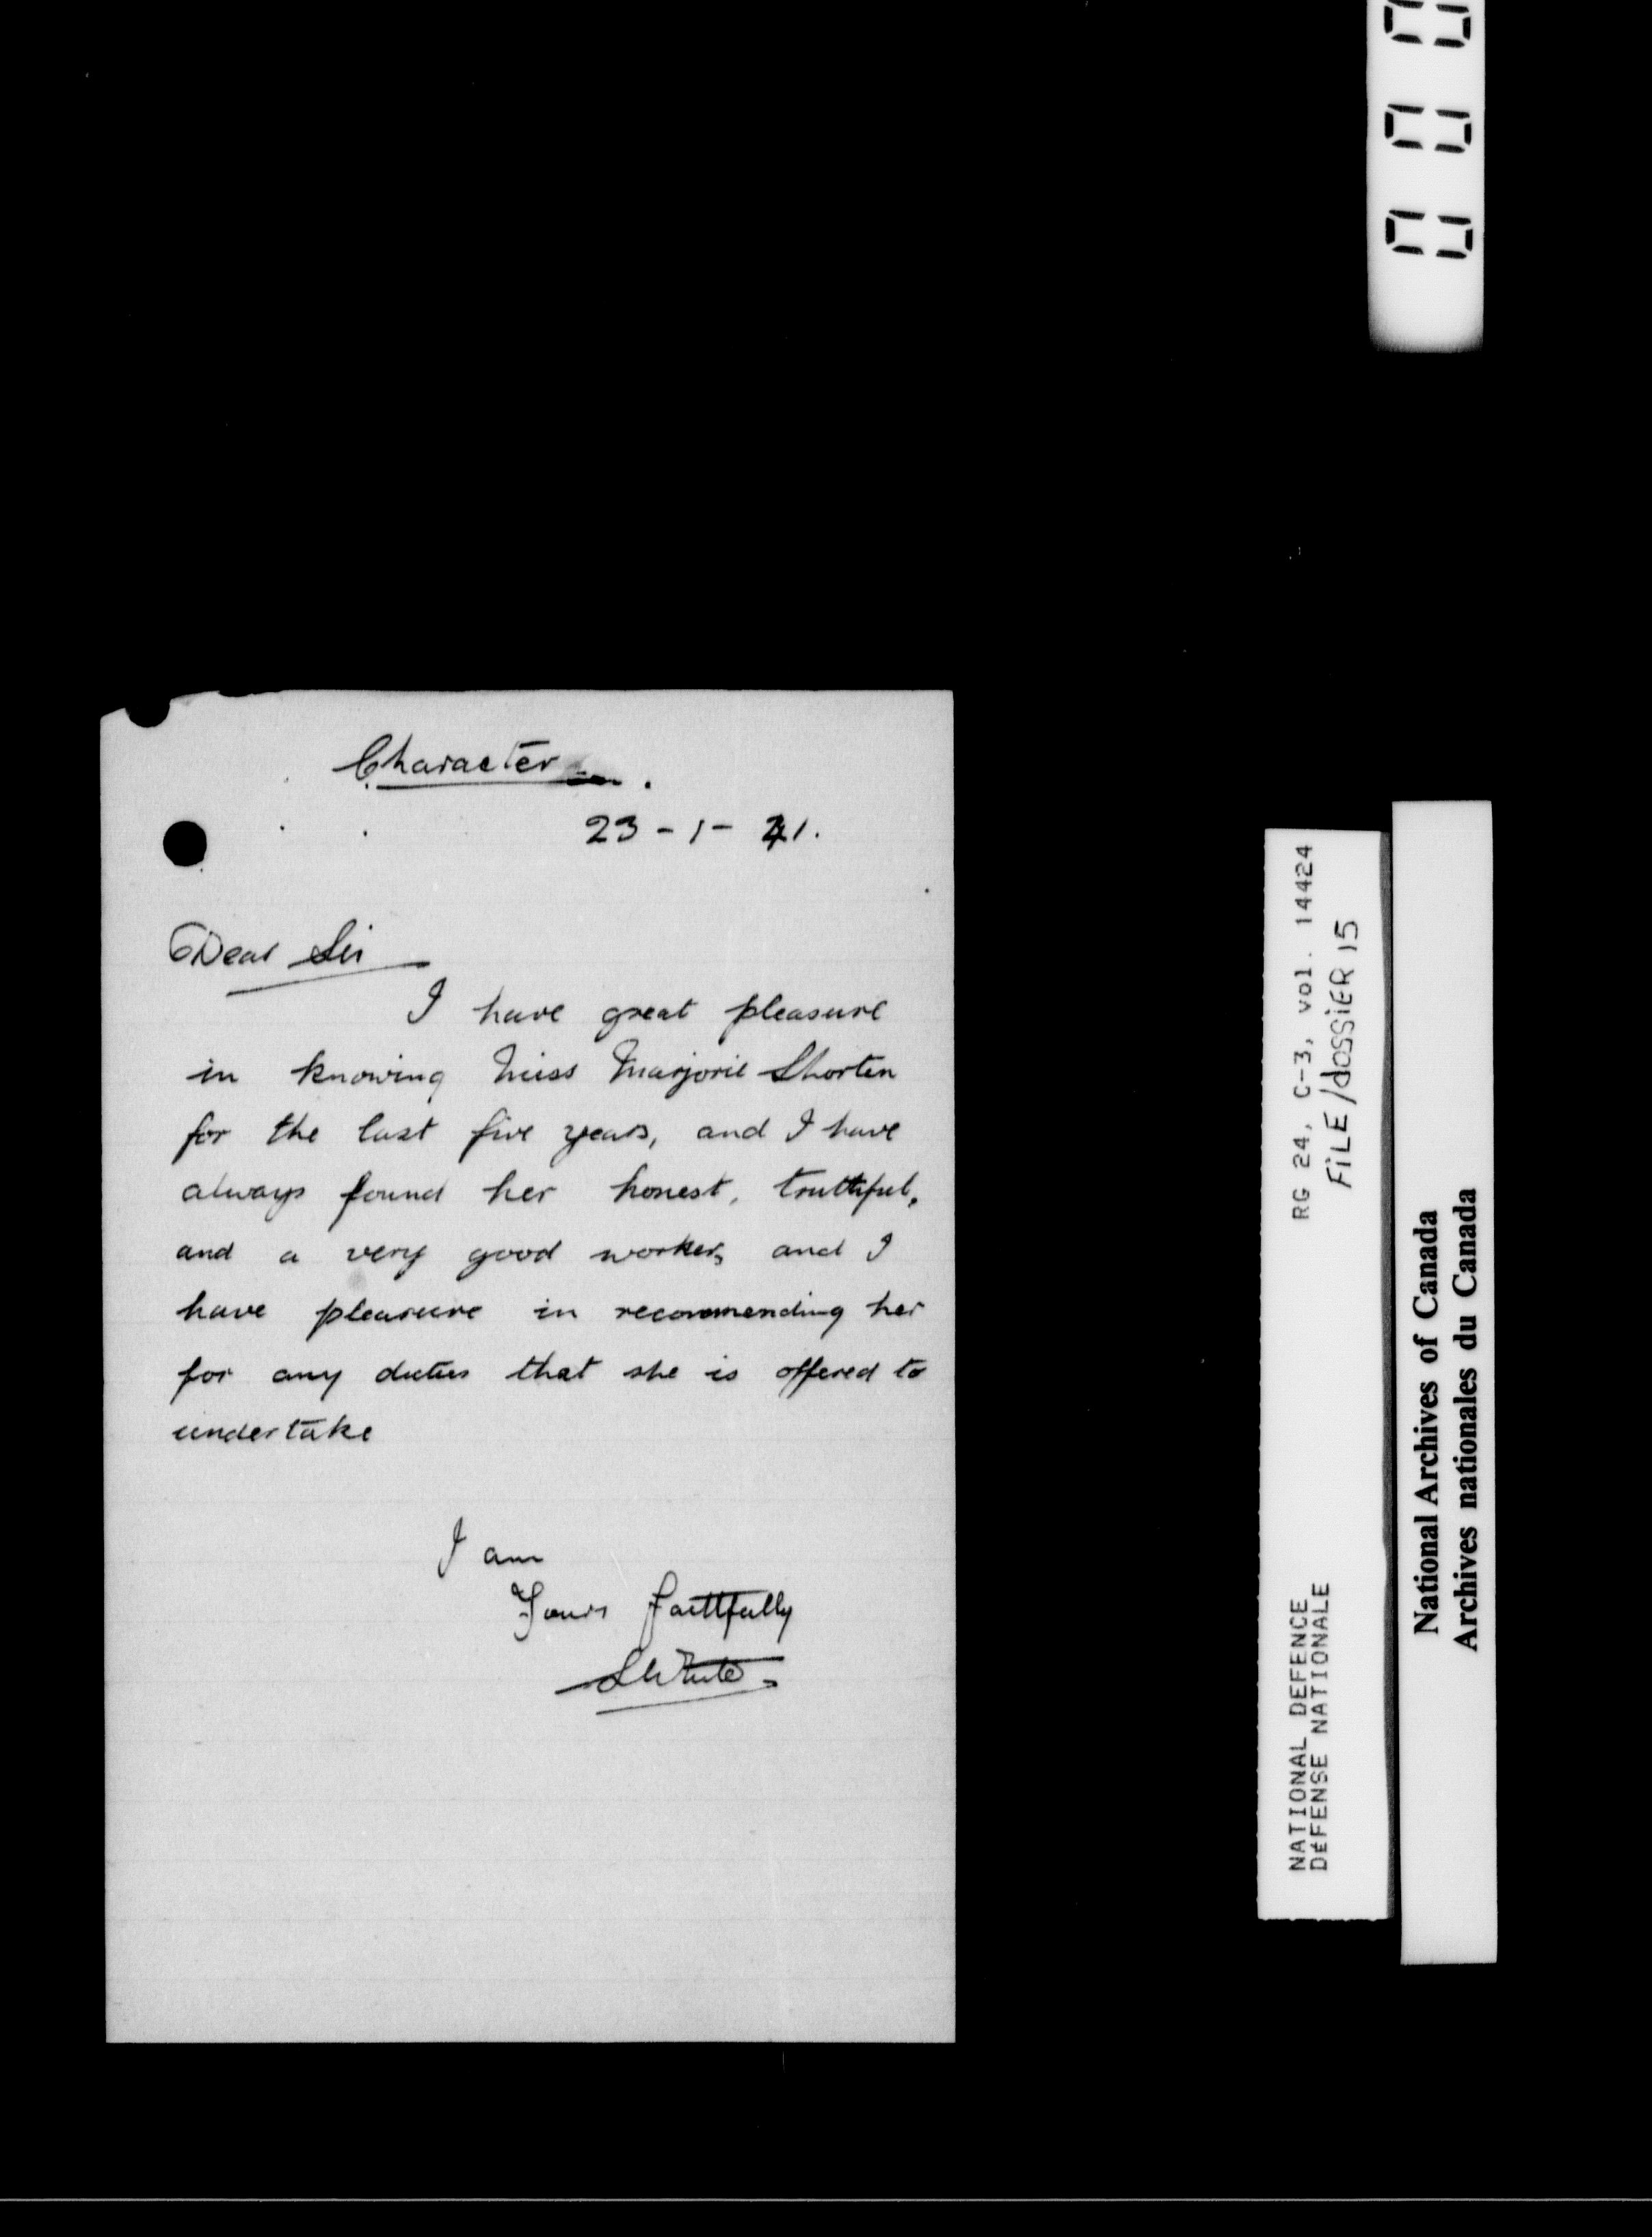 Character.
23 - 1 - 41.
Dear Sir
I have great pleasure
in knowing Miss Marjorie Shorten
for the last five years, and I have
always found her honest, truthful,
and a very good worker, and I
have pleasure in recommending her
for any duties that she is offered to
undertake
I am
Yours faithfully
White
RG 24, C-3, vol. 14424
FiLE/dOSSiER 15
NATIONAL DEFENCE
DéFENSE NATIONALE
National Archives of Canada
Archives nationales du Canada